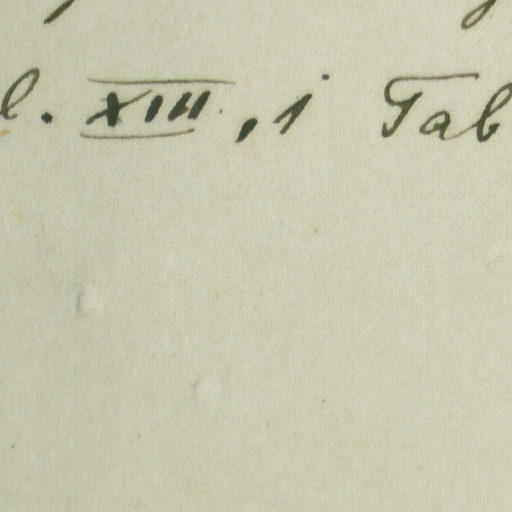 l. XIII, i Tab